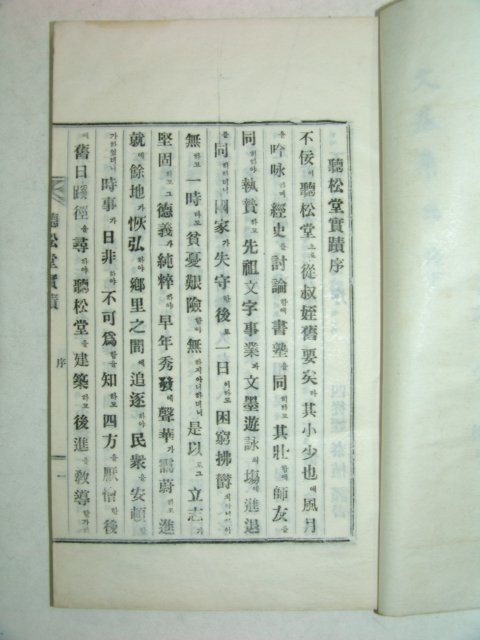 聽松堂實蹟序
不佞이聽松堂으로從叔姪舊要矣라其小少也에風月
을吟咏하며經史를討論할새書塾을同히하고其壯할새師友을
同히하야執贄하고先祖文字事業과文墨遊詠의場에進退
을同하고國家가失守한後로一日이라도困窮拂鬱
無하고一時라도貧憂艱險함이無하지아니하더니是以로그立志가
堅固하고그德義가純粹하야早年秀發에聲華가靄蔚하고進
就에餘地가恢弘하야鄕里之間에追逐하야民衆을安頓
가하얏더니時事가日非하야不可爲함을知하고四方을厭憎한後
에舊日蹊徑을尋하야聽松堂을建築하고後進을敎導
聽松堂實蹟 序 一